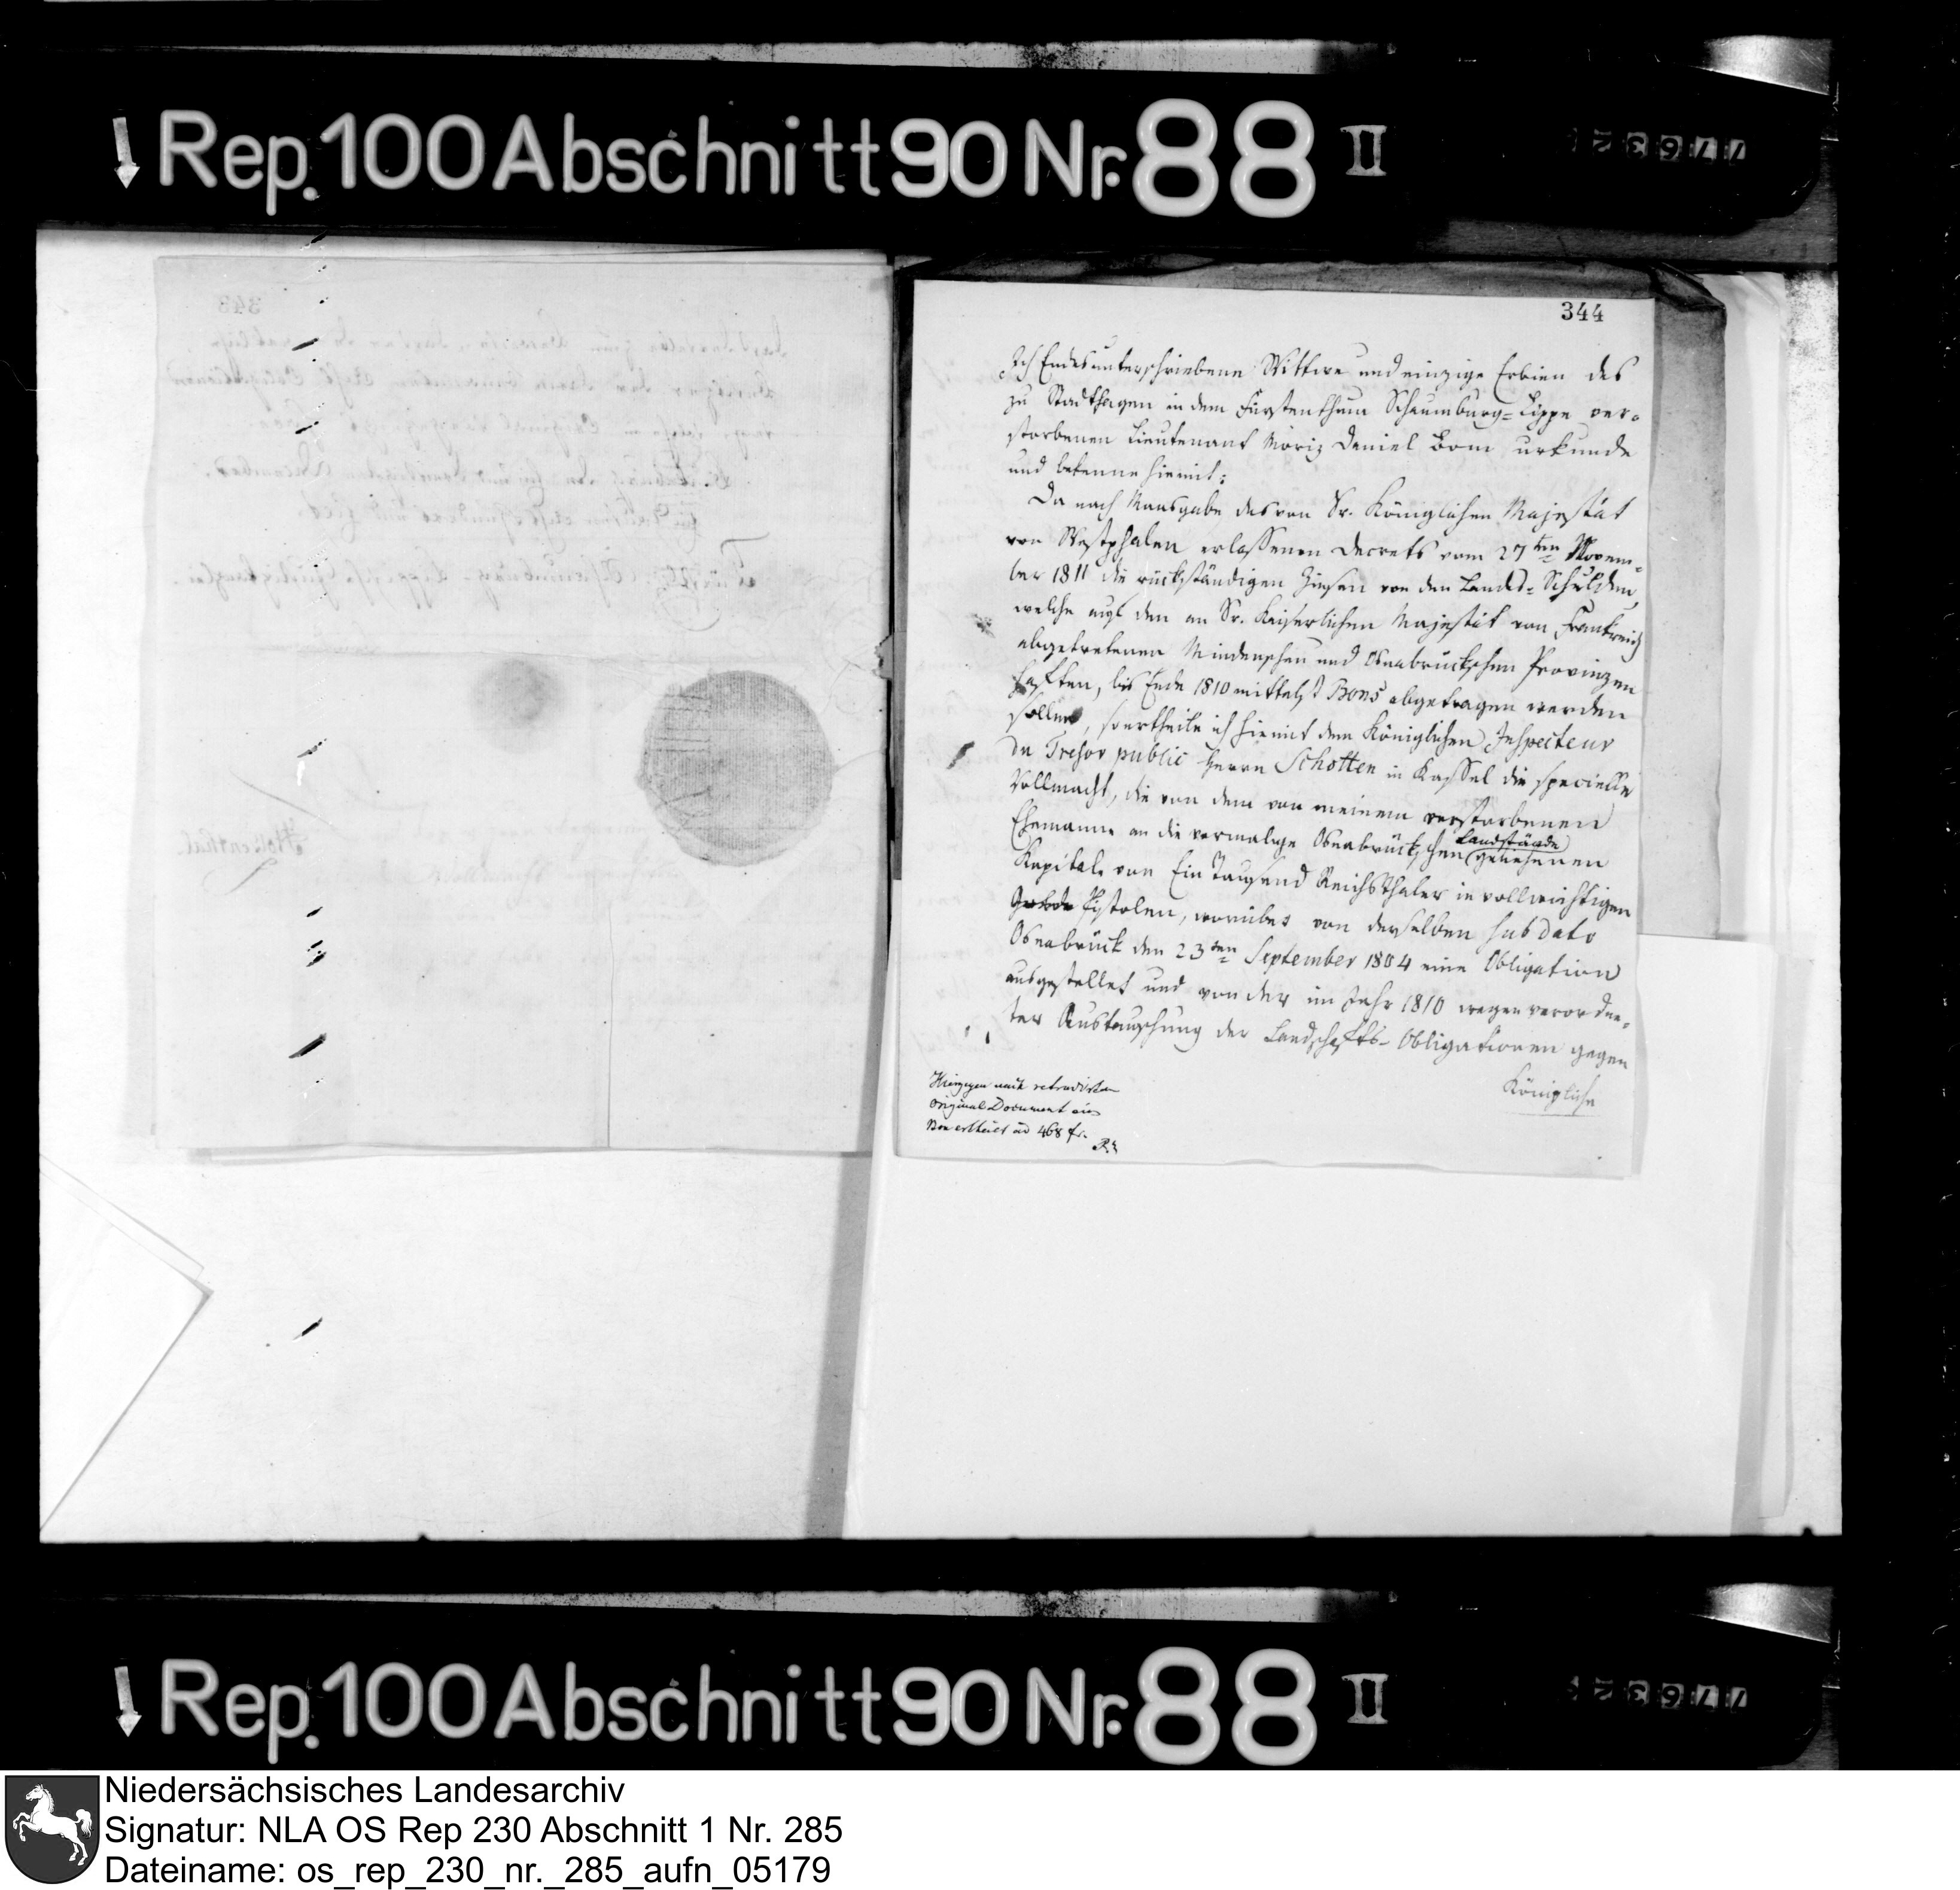 Rep. 100 Abschnitt 90 Nr. 88 II
344
Ich Endesunterschriebene Wittwe und einzige Erbien des
zu Stadthagen in dem Fürstenthum Schaumburg=Lippe ver=
storbenen Lieutenant Moriz Daniel Bom urkunde
und bekenne hiemit:
Da nach Maasgabe des von Sr. Königlichen Majestät
von Westphalen erlassenen Decrets vom 27ten Novem=
ber 1811 die rückständigen Zinsen von den Landes=Schulden,
welche auf den an Sr. Kaiserlichen Majestät von Frankreich
abgetretenen Mindenschen und Osnabrückschen Provinzen
haften, bis Ende 1810 mittelst Bons abgetragen werden
sollen, so ertheile ich hiemit dem Königlichen Inspecteur
du Tresor public Herrn Schotten in Kassel die specielle
Vollmacht, die von dem von meinem verstorbenen
Ehemanne an die vormalige Osnabrückschen Landstände geliehenen
Kapitale von Ein Tausend Reichsthaler in vollwichtigen
Pistolen, worüber von derselben sub dato
Osnabrück den 23ten September 1804 eine Obligation
ausgestellet und von der im Jahr 1810 wegen verordne=
ter Austauschung der Landschafts-Obligationen gegen
Königliche
Hiergegen nach retradirtem
Original Document ein
Bon ertheilt ad 468 fr.
Rep. 100 Abschnitt 90 Nr. 88 II
Niedersächsisches Landesarchiv
Signatur: NLA OS Rep 230 Abschnitt 1 Nr. 285
Dateiname: os_rep_230_nr._285_aufn_05179